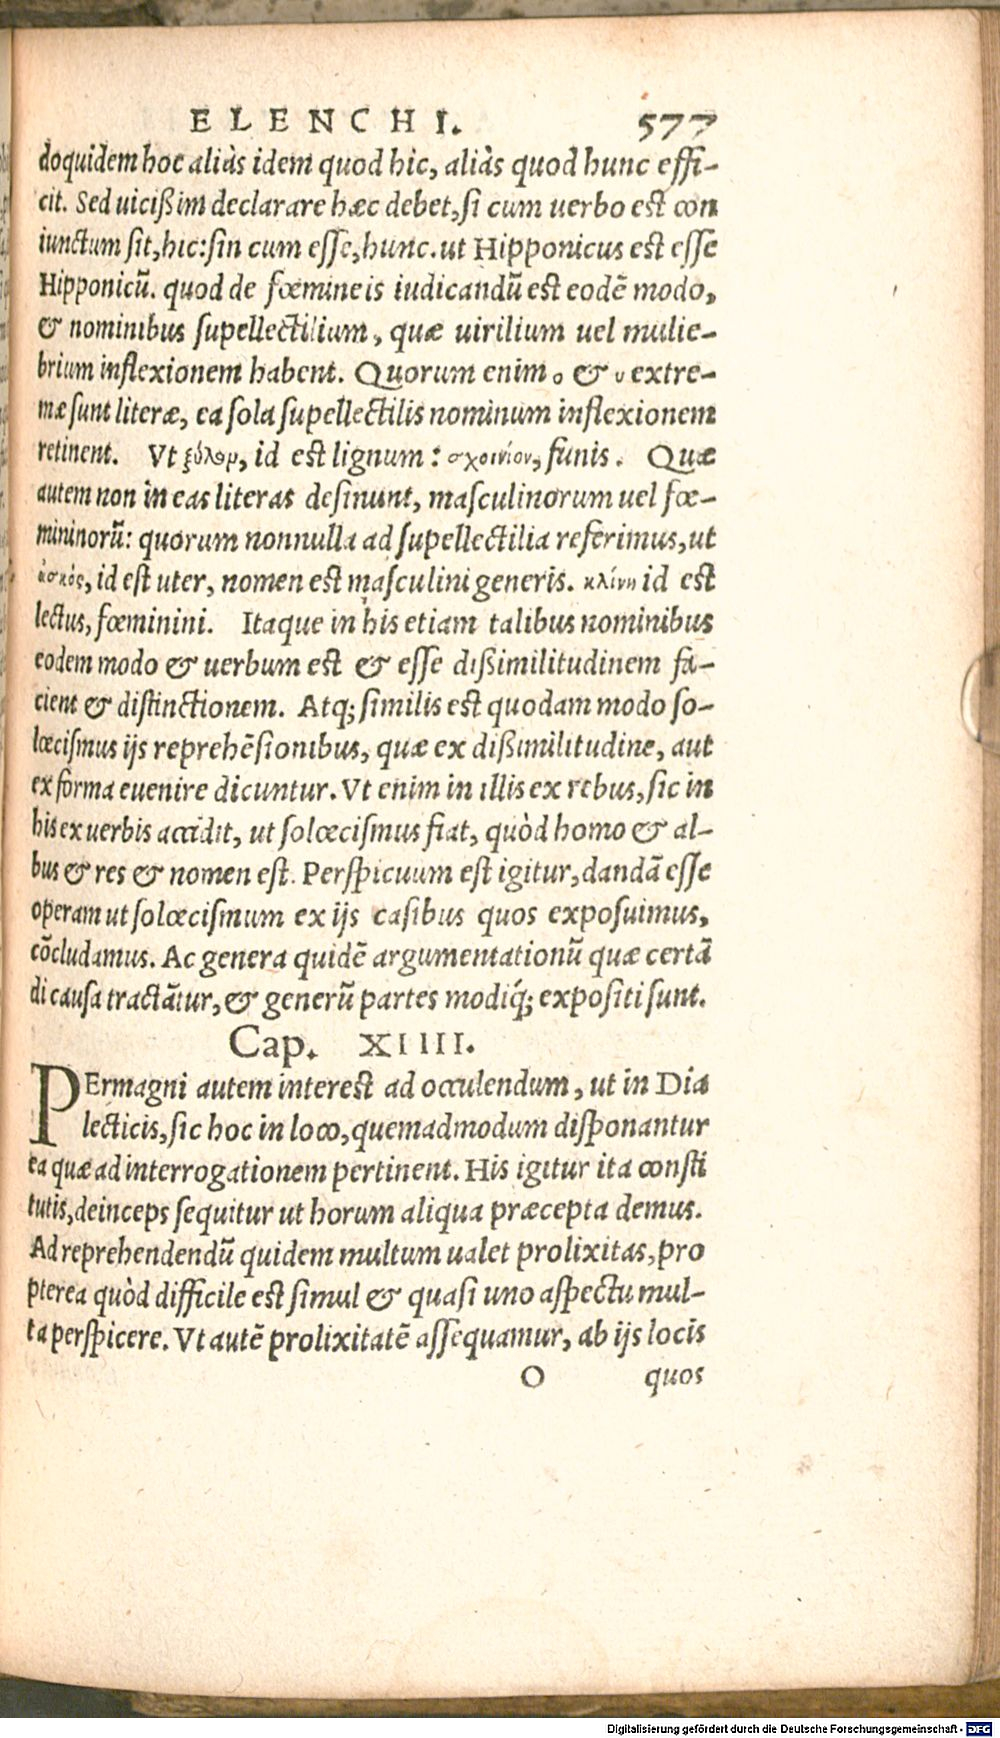 ELENCHI. 577
doquidem hoc aliàs idem quod hic, aliàs quod hunc effi-
cit. Sed uicißim declarare hæc debet, si cum uerbo est con
iunctum sit, hic: sin cum esse, hunc. ut Hipponicus est esse
Hipponicũ. quod de fœmineis iudicandũ est eodẽ modo,
& nominibus supellectilium, quæ uirilium uel mulie-
brium inflexionem habent. Quorum enim ο & ν extre-
mæ sunt literæ, ea sola supellectilis nominum inflexionem
retinent. Vt ξύλον, id est lignum: σχοινίον, funis. Quæ
autem non in eas literas desinunt, masculinorum uel fœ-
mininorũ: quorum nonnulla ad supellectilia referimus, ut
ἀσκὸς, id est uter, nomen est masculini generis. κλίνη id est
lectus, fœminini. Itaque in his etiam talibus nominibus
eodem modo & uerbum est & esse dißimilitudinem fa-
cient & distinctionem. Atq; similis est quodam modo so-
lœcismus ijs reprehẽsionibus, quæ ex dißimilitudine, aut
ex forma euenire dicuntur. Vt enim in illis ex rebus, sic in
his ex uerbis accidit, ut solœcismus fiat, quòd homo & al-
bus & res & nomen est. Perspicuum est igitur, dandã esse
operam ut solœcismum ex ijs casibus quos exposuimus,
cõcludamus. Ac genera quidẽ argumentationũ quæ certã
di causa tractãtur, & generũ partes modiq́; expositi sunt.
Cap. XIIII.
PErmagni autem interest ad occulendum, ut in Dia
lecticis, sic hoc in loco, quemadmodum disponantur
ea quæ ad interrogationem pertinent. His igitur ita consti
tutis, deinceps sequitur ut horum aliqua præcepta demus.
Ad reprehendendũ quidem multum ualet prolixitas, pro
pterea quòd difficile est simul & quasi uno aspectu mul-
ta perspicere. Vt autẽ prolixitatẽ assequamur, ab ijs locis
O quos
Digitalisierung gefördert durch die Deutsche Forschungsgemeinschaft - DFG